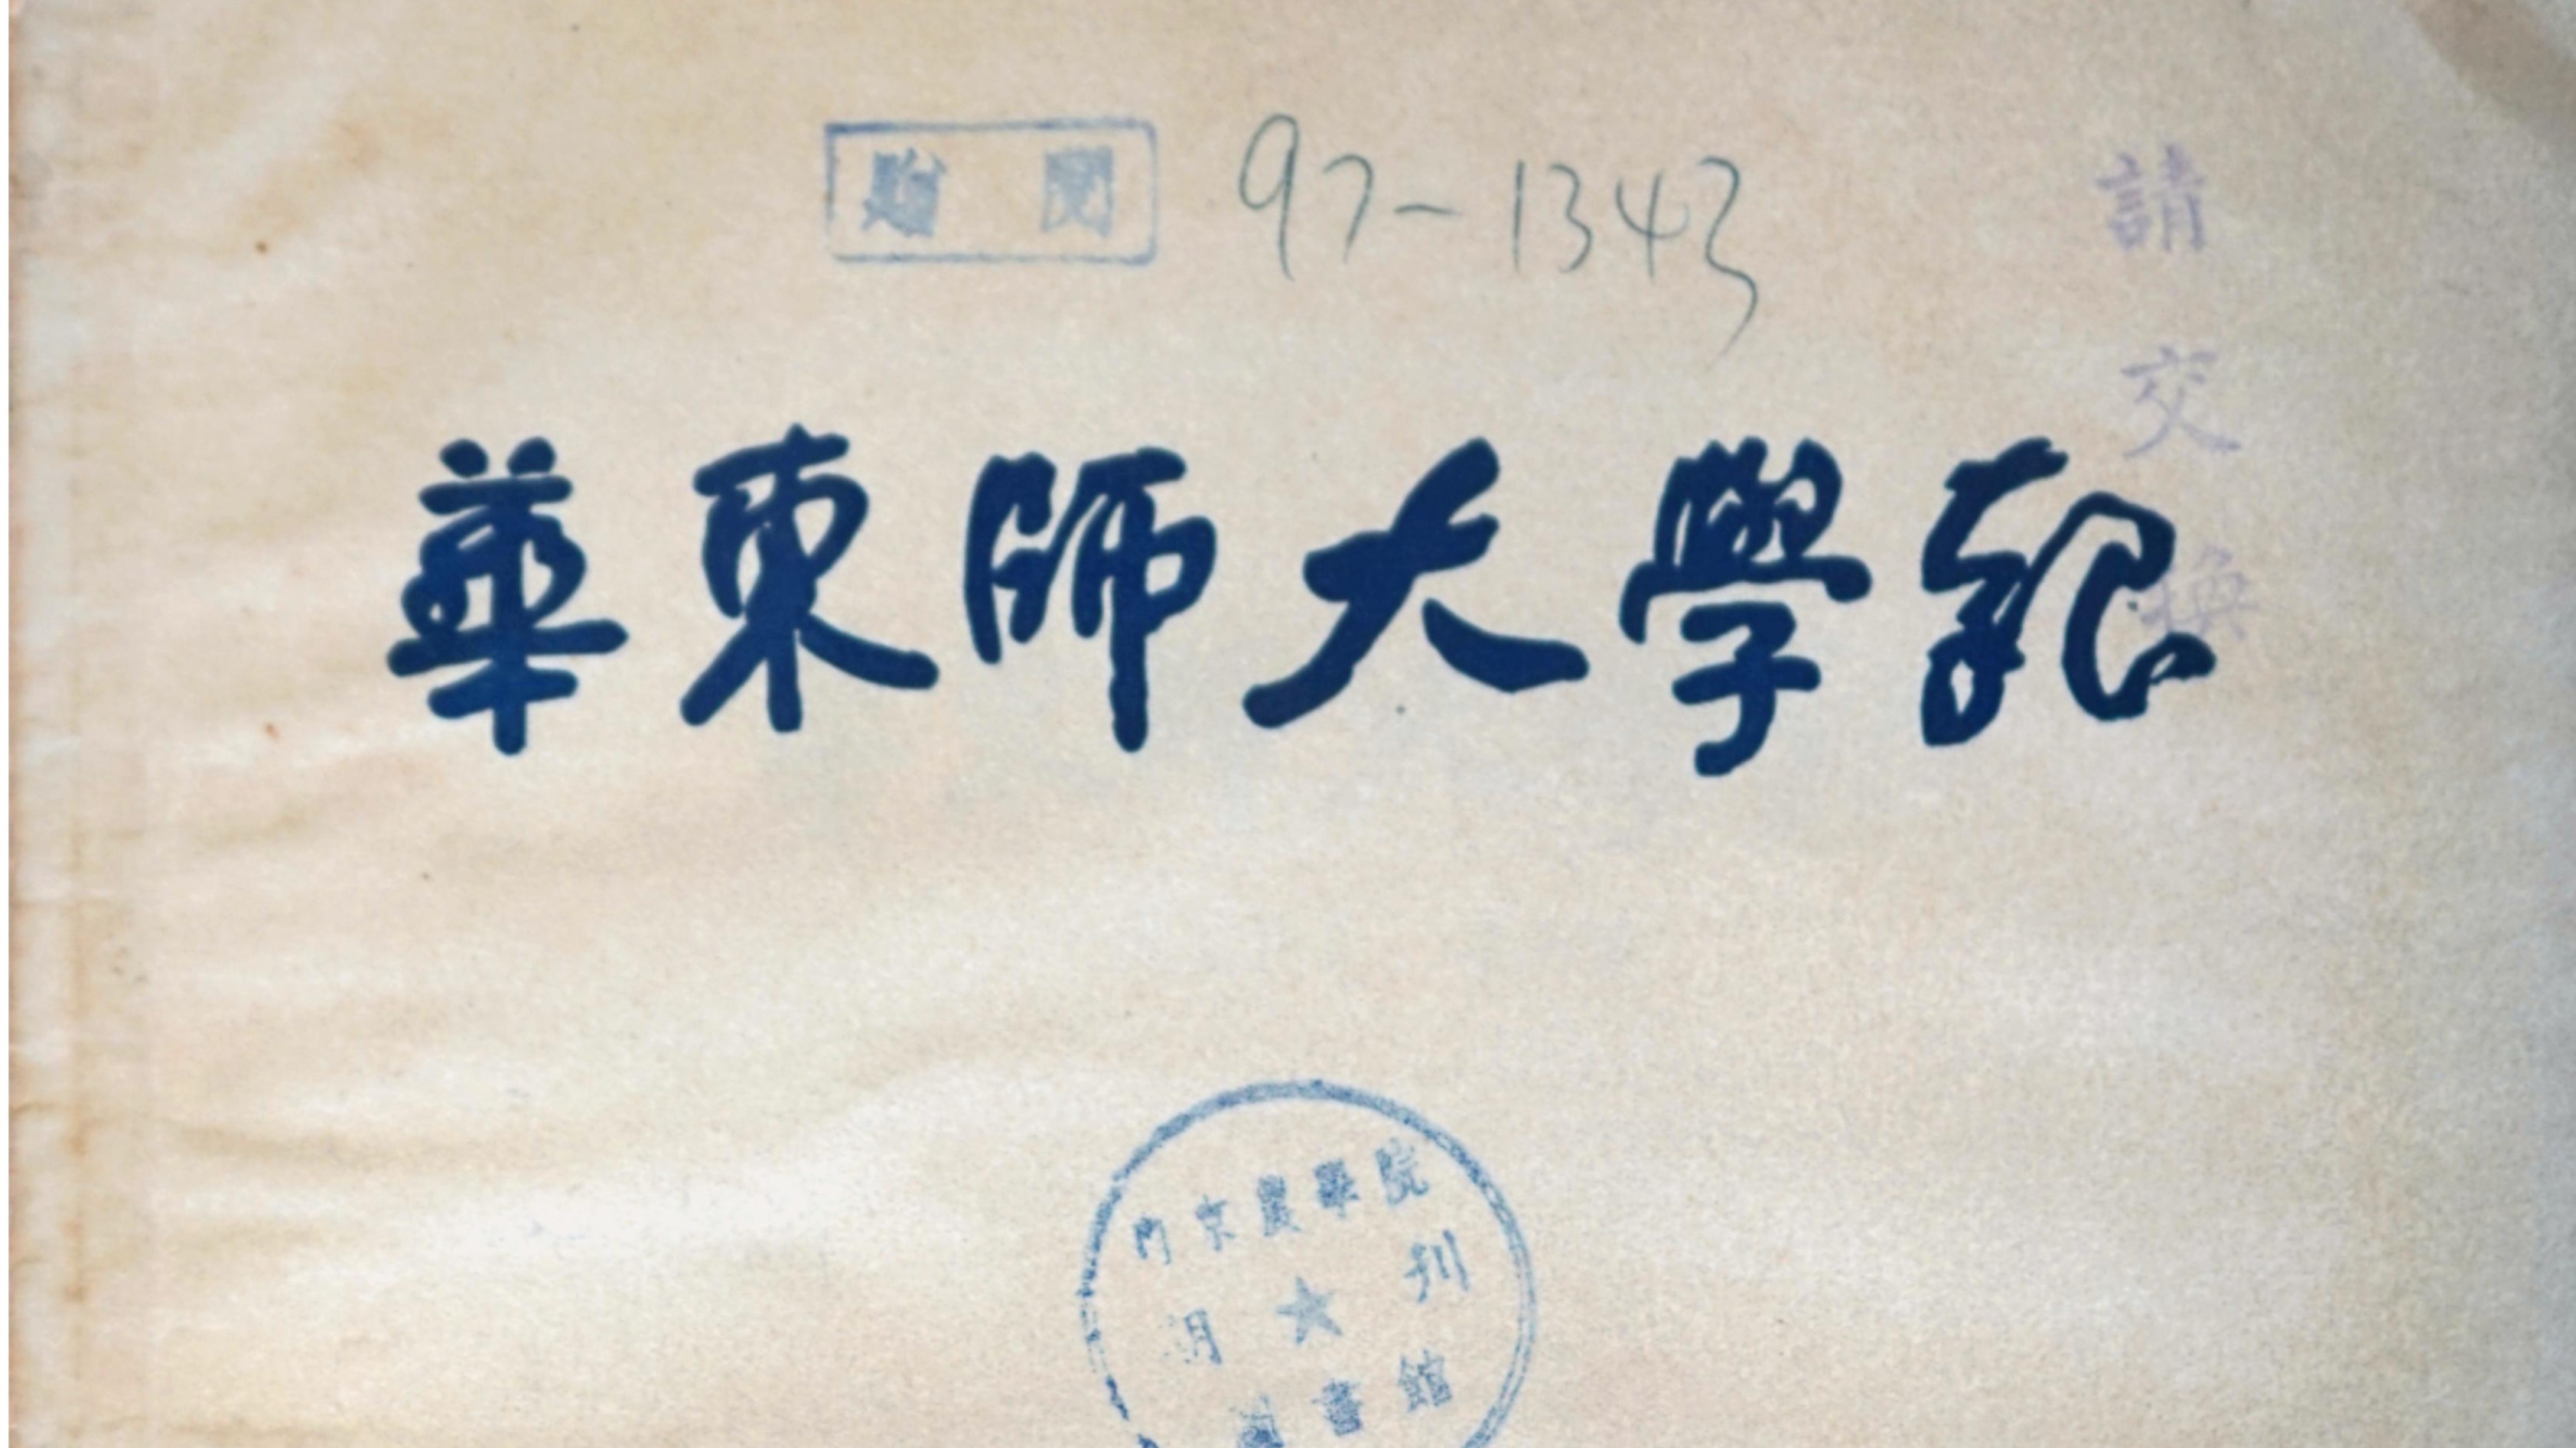 97-1343
請交換
華東師大學報
京農學院
期 刊
圖書館